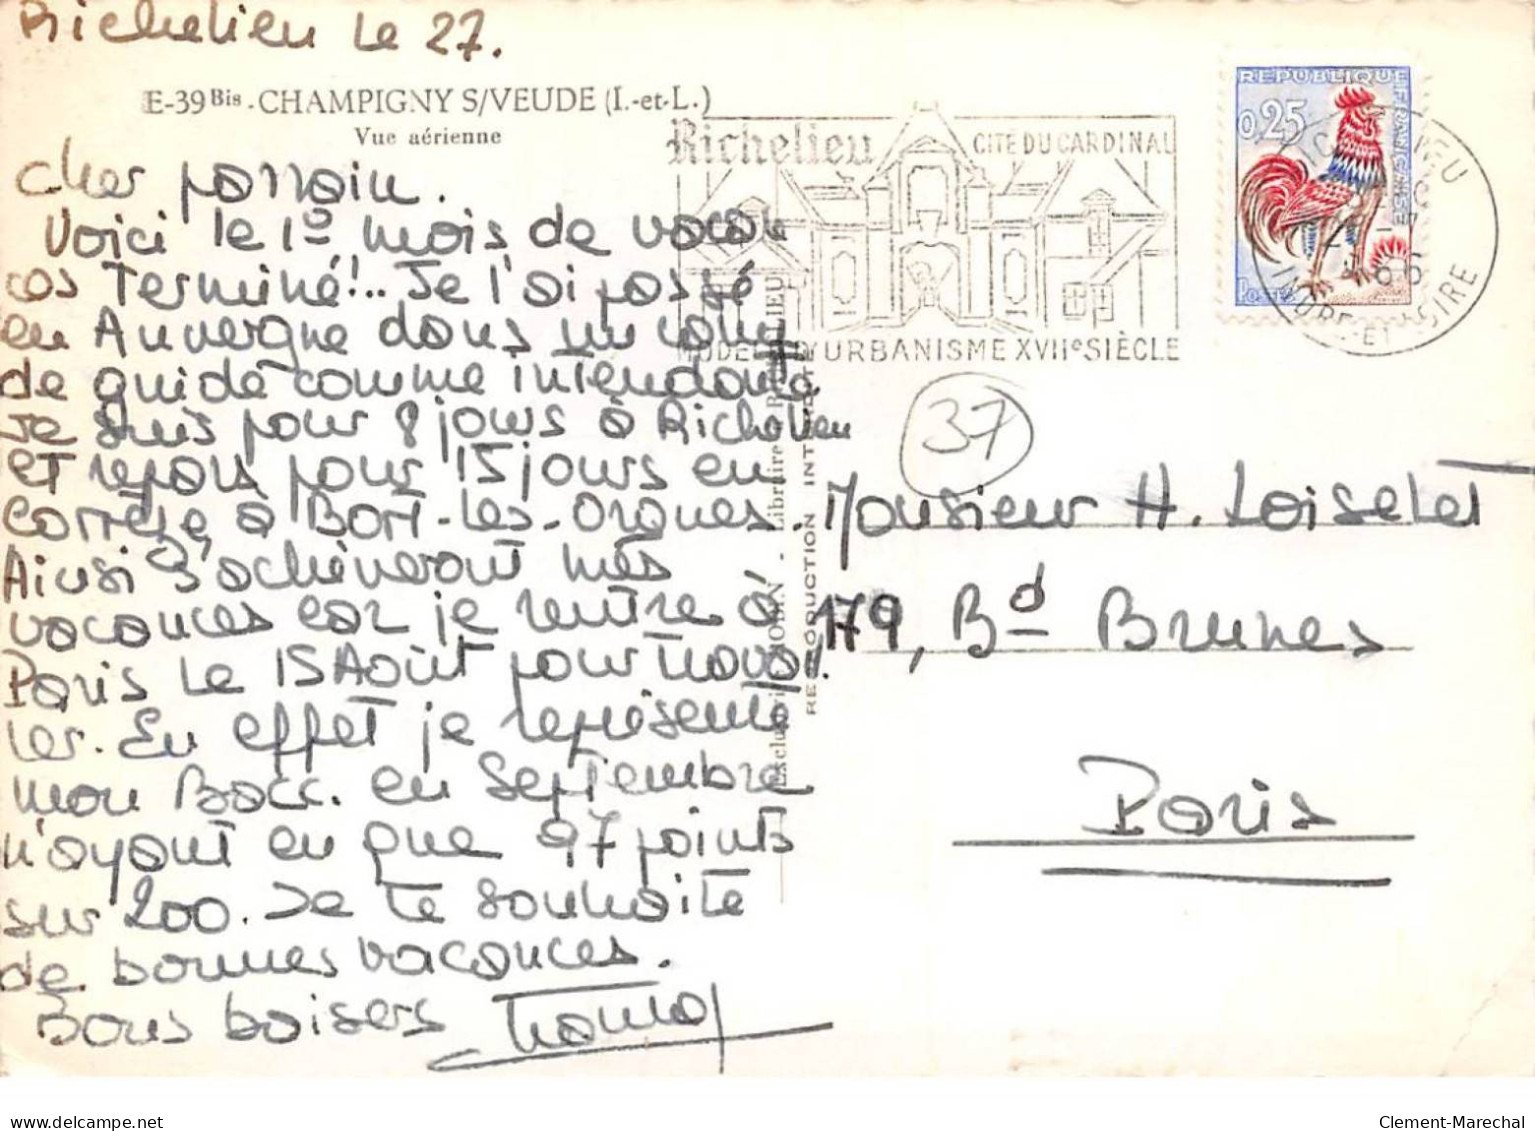 Richelieu le 27.
E-39 Bis - CHAMPIGNY S/VEUDE (I.-et-L.)
Vue aérienne
Cher parrain.
Voici le 1º mois de vacan
ces Terminé!.. Je l'ai passé
en Auvergne dans un camp
de guide comme intendante
Je suis pour 8 jours à Richelieu
et repars pour 15 jours en
Corrèze à Bort-les-Orgues.
Ainsi s'achèveront mes
vacances car je rentre à
Paris le 15 Août pour travail
ler. En effet je représente
mon Bacc. en Septembre
n'ayant eu que 97 points
sur 200. Je te souhaite
de bonnes vacances.
Bons baisers
Richelieu
CITÉ DU CARDINAL
MODÈLE D'URBANISME XVIIe SIÈCLE
REPUBLIQUE FRANÇAISE
0,25
Postes
RICHELIEU
INDRE-ET-LOIRE
37
Monsieur H. Loiselet
179, Bd Brunes
Paris
Exclusivité - Librairie RICHELIEU
REPRODUCTION INTERDITE
Clement-Marechal